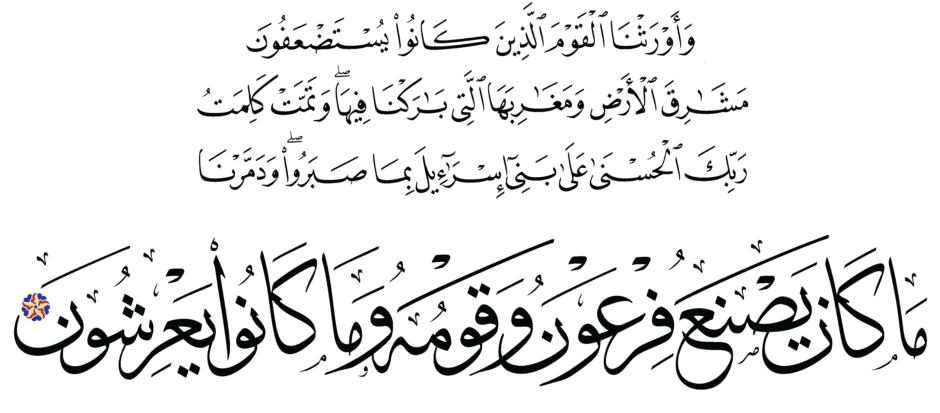 وَأَوْرَثْنَا ٱلْقَوْمَ ٱلَّذِينَ كَانُوا۟ يُسْتَضْعَفُونَ
مَشَـٰرِقَ ٱلْأَرْضِ وَمَغَـٰرِبَهَا ٱلَّتِى بَـٰرَكْنَا فِيهَا ۖ وَتَمَّتْ كَلِمَتُ
رَبِّكَ ٱلْحُسْنَىٰ عَلَىٰ بَنِىٓ إِسْرَٰٓءِيلَ بِمَا صَبَرُوا۟ ۖ وَدَمَّرْنَا
مَا كَانَ يَصْنَعُ فِرْعَوْنُ وَقَوْمُهُۥ وَمَا كَانُوا۟ يَعْرِشُونَ